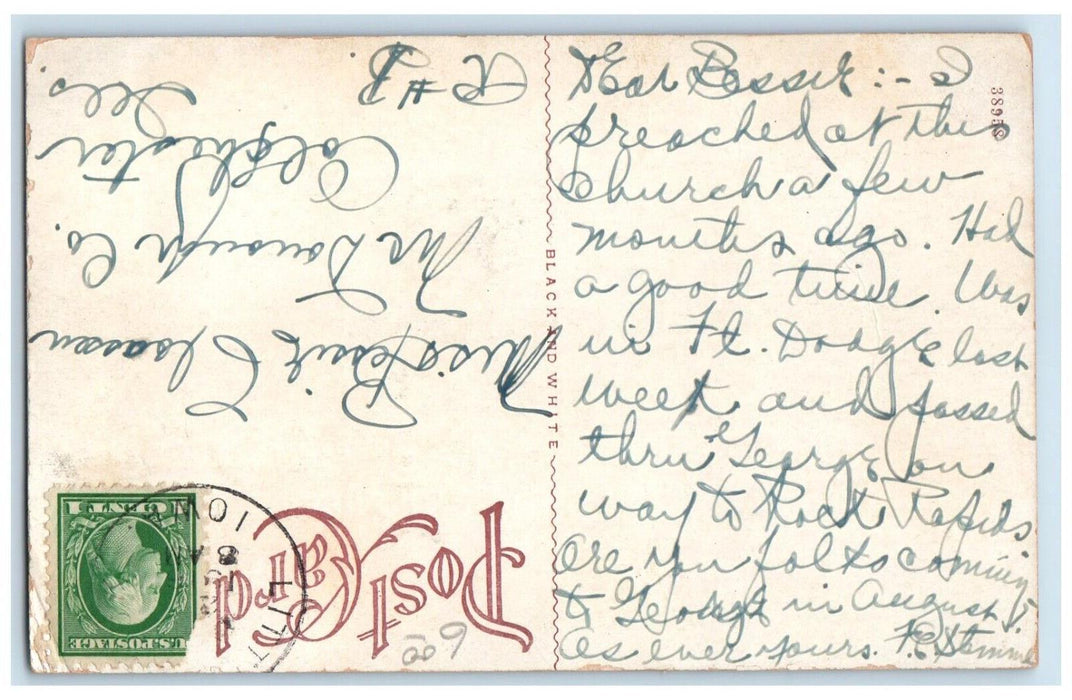 Dear Bessie:- I
preached at this
church a few
months ago. Had
a good time. Was
in Ft. Dodge last
week and passed
thru George on
way to Rock Rapids
Are you folks coming
to George in August
As ever yours. F.E.
38958
BLACK AND WHITE
Post Card
Miss Bessie
Mc Donough Co.
Colchester
Ills.
R #
IOWA
8 AM
U.S. POSTAGE
1 CENT 1
69